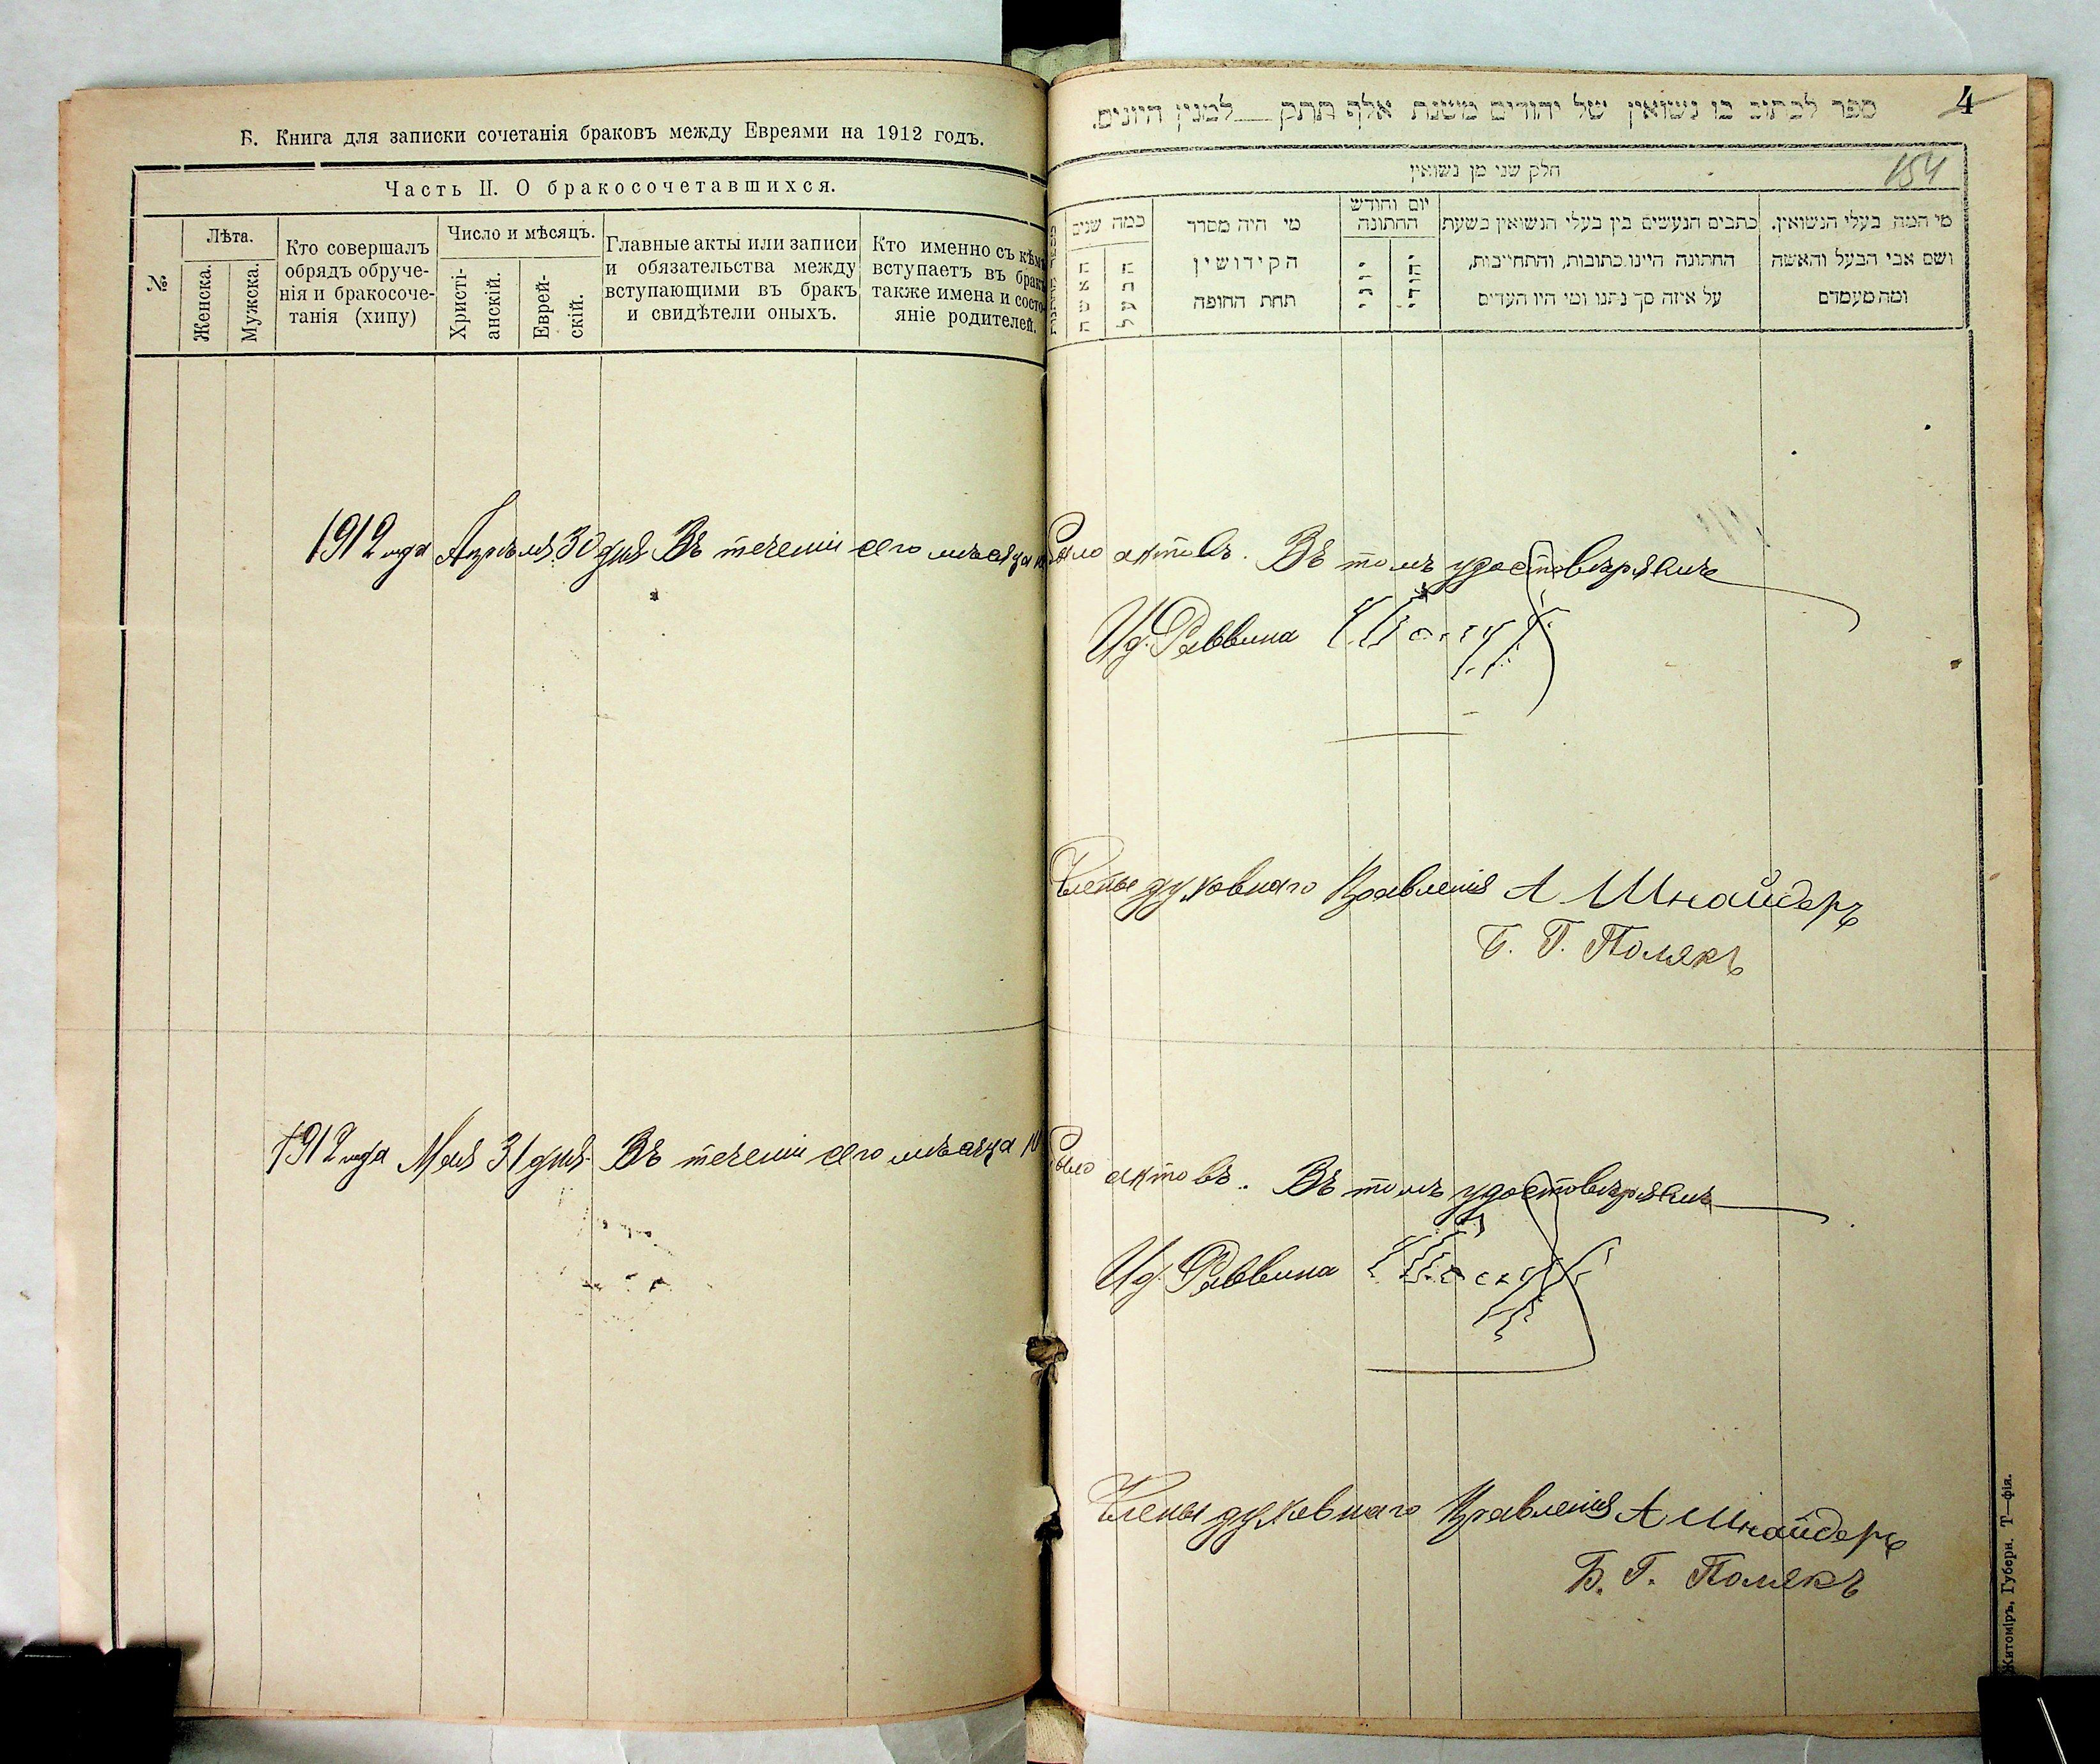 Б. Книга для записки сочетанія браковъ между Евреями на 1912 годъ.
Часть II. О бракосочетавшихся.
№
Лѣта.
Женска.
Мужска.
Кто совершалъ
обрядъ обруче-
нія и бракосоче-
танія (хипу)
Число и мѣсяцъ.
Христі-
анскій.
Еврей-
скій.
Главные акты или записи
и обязательства между
вступающими въ бракъ
и свидѣтели оныхъ.
Кто именно съ кѣмъ
вступаетъ въ бракъ
также имена и состо-
яніе родителей.
ספר לכתוב בו נשואין של יהודים משנת אלף תתק למנין היונים.
4
חלק שני מן נשואין
154
כמה שנים
האשה
הבעל
מי היה מסדר
הקידושין
תחת החופה
יום וחודש
החתונה
יוני
יהודי
כתבים הנעשים בין בעלי הנשואין בשעת
החתונה היינו כתובות, והתחייבות,
על איזה סך נתנו ומי היו העדים
מי המה בעלי הנשואין.
ושם אבי הבעל והאשה
ומה מעמדם
1912 года Апрѣля 30 дня Въ теченіи сего мѣсяца не было актовъ. Въ томъ удостовѣряемъ
И. д. Раввина
Члены духовнаго Правленія А Шнайдеръ
Б. Г. Полякъ
1912 года Мая 31 дня. Въ теченіи сего мѣсяца не было актовъ. Въ томъ удостовѣряемъ
И. д. Раввина
Члены духовнаго Правленія А Шнайдеръ
Б. Г. Полякъ
Житоміръ, Губерн. Т—фія.